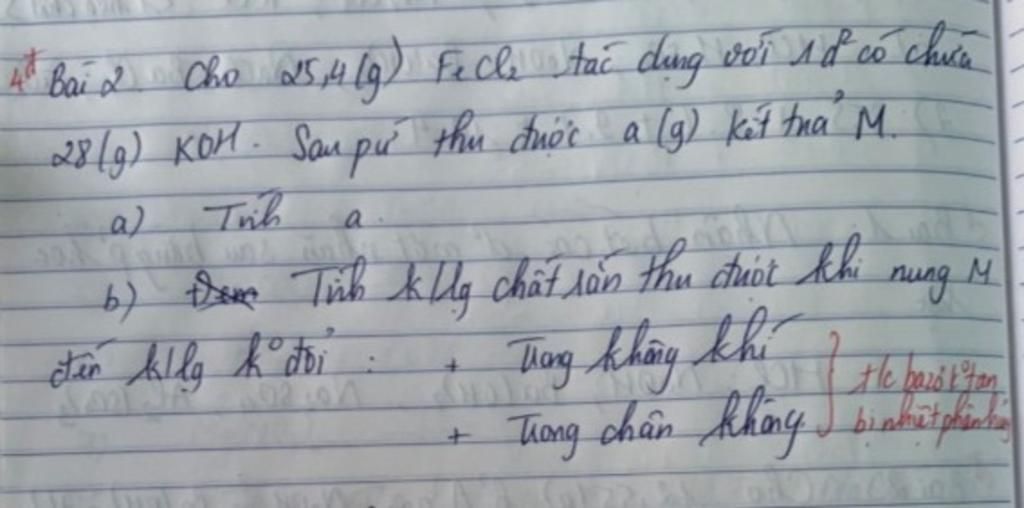 4đ Bài 2. Cho 25,4 (g) FeCl₂ tác dụng với 1 d² có chứa
28 (g) KOH. Sau pứ thu được a (g) kết tủa M.
a) Tính a.
b) Tính klg chất rắn thu được khi nung M
đến klg k° đổi : + Trong không khí
+ Trong chân không
t/c bazơ k° tan
bị nhiệt phân hủy